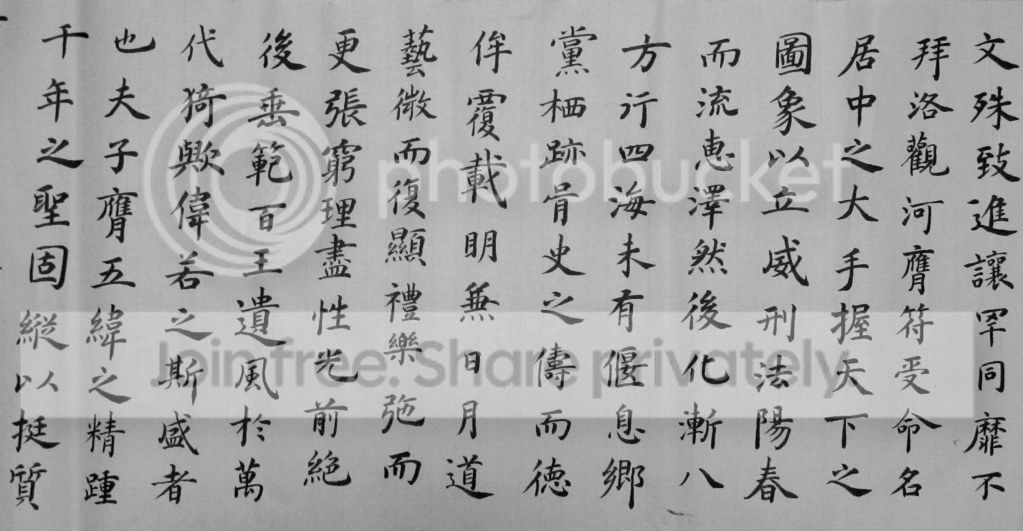 文殊致進讓罕同靡不
拜洛觀河膺符受命名
居中之大手握天下之
圖象以立威刑法陽春
而流恵澤然後化漸八
方行四海未有偃息鄉
黨栖跡胥史之儔而德
侔覆載明無日月道
藝微而復顯禮樂弛而
更張窮理盡性光前絕
後垂範百王遺風於萬
代猗歟偉若之斯盛者
也夫子膺五緯之精踵
千年之聖固縱以挺質
photobucket
Join free. Share privately.